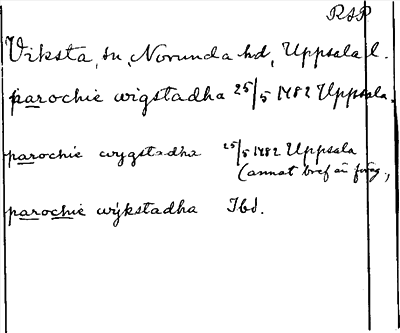 RAP
Viksta, sn, Norunda hd, Uppsala l.
parochie wigstadha 25/5 1482 Uppsala.
parochie wygstadha 25/5 1482 Uppsala
(annat bref än föreg.,
parochie wykstadha Ibd.